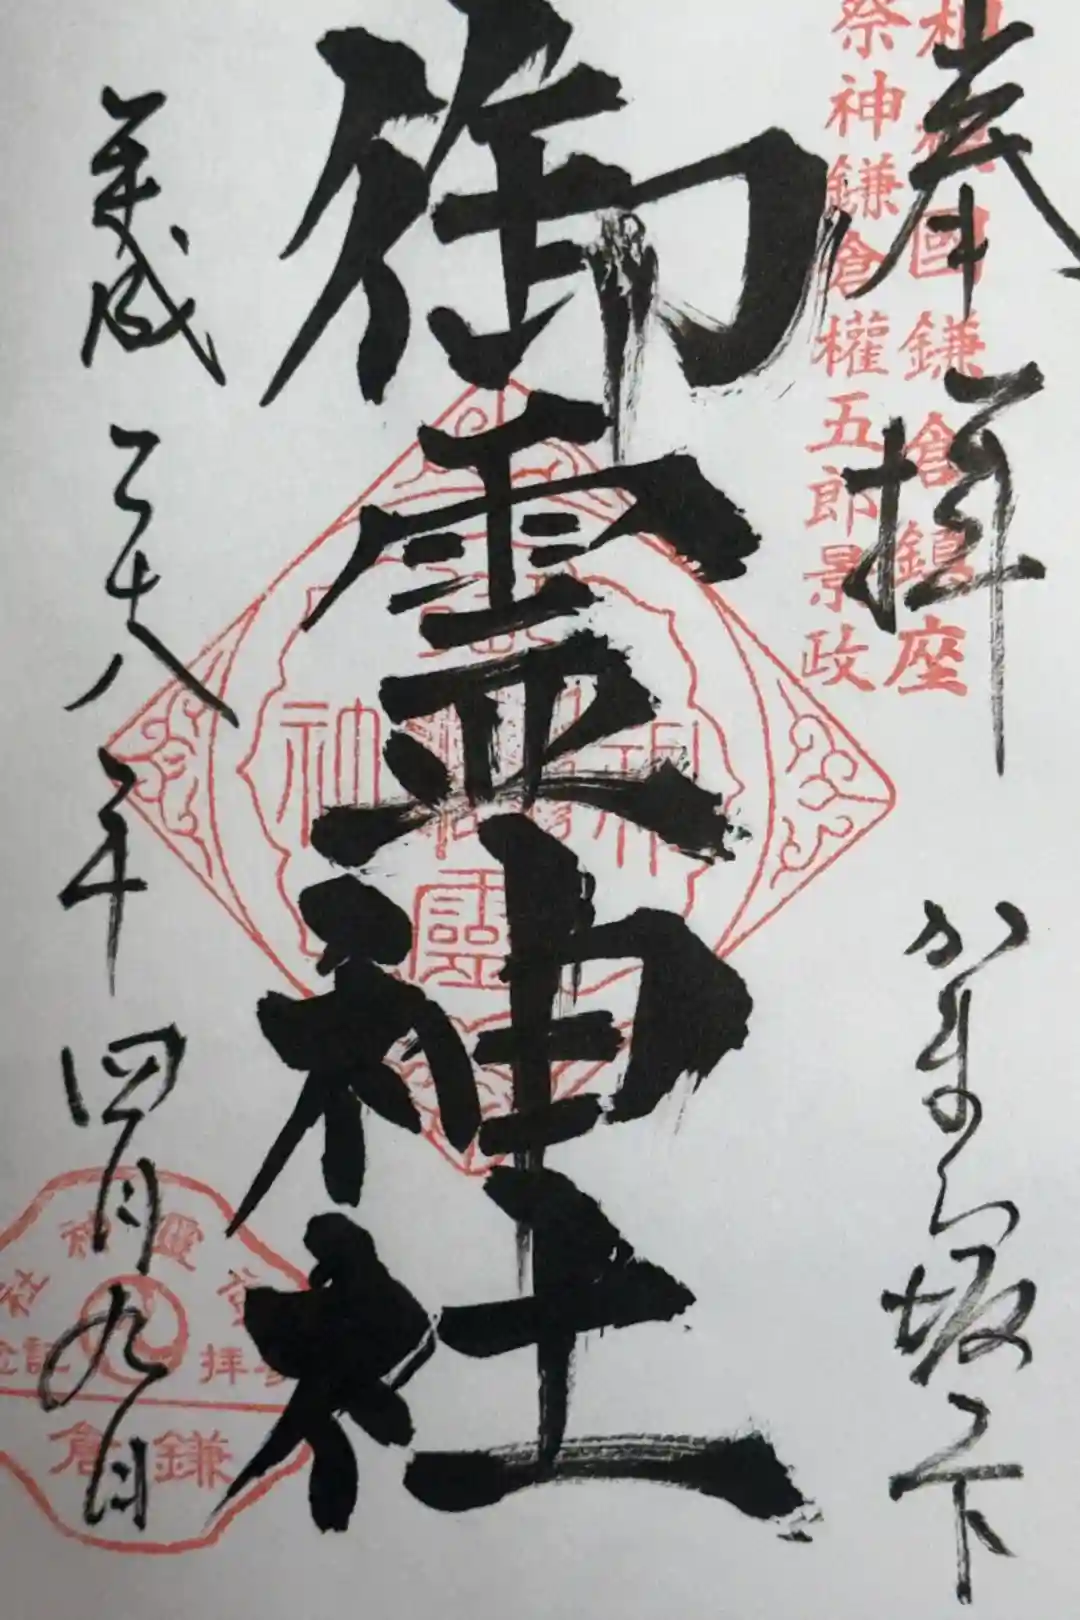 奉拝
かまくら坂ノ下
相模國鎌倉鎮座
祭神鎌倉權五郎景政
御霊神社
平成二十八年四月九日
御靈神社
參拝記念
鎌倉